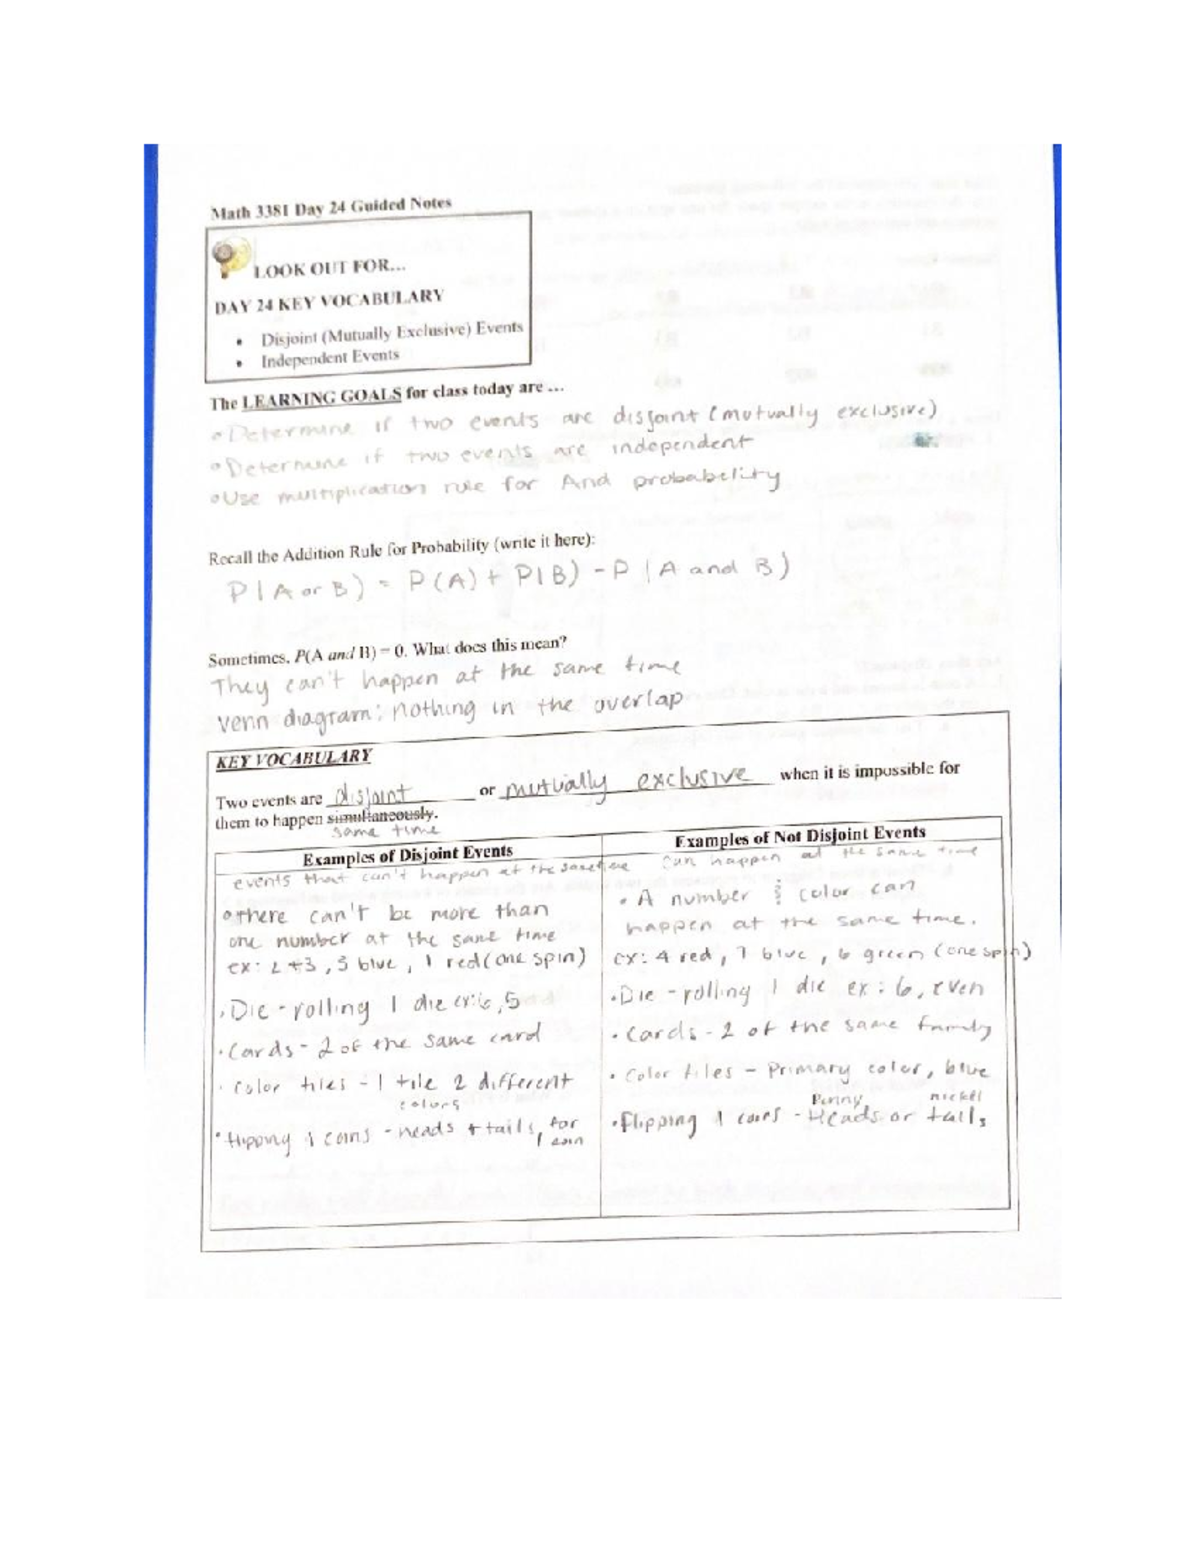 Math 3381 Day 24 Guided Notes
LOOK OUT FOR...
DAY 24 KEY VOCABULARY
• Disjoint (Mutually Exclusive) Events
• Independent Events
The LEARNING GOALS for class today are ...
• Determine if two events are disjoint (mutually exclusive)
• Determine if two events are independent
• Use multiplication rule for And probability
Recall the Addition Rule for Probability (write it here):
P(A or B) = P(A) + P(B) - P(A and B)
Sometimes, P(A and B) = 0. What does this mean?
They can't happen at the same time
Venn diagram: nothing in the overlap
KEY VOCABULARY
Two events are disjoint or mutually exclusive when it is impossible for
them to happen simultaneously.
same time
Examples of Disjoint Events
events that can't happen at the same time
• there can't be more than
one number at the same time
ex: 2+3, 3 blue, 1 red (one spin)
• Die - rolling 1 die ex: 6, 5
• Cards - 2 of the same card
• Color tiles - 1 tile 2 different
colors
• flipping 1 coins - heads + tails, for
1 coin
Examples of Not Disjoint Events
can happen at the same time
• A number & color can
happen at the same time.
ex: 4 red, 7 blue, 6 green (one spin)
• Die - rolling 1 die ex: 6, even
• Cards - 2 of the same family
• Color tiles - Primary color, blue
Penny nickel
• Flipping 1 coins - Heads or tails